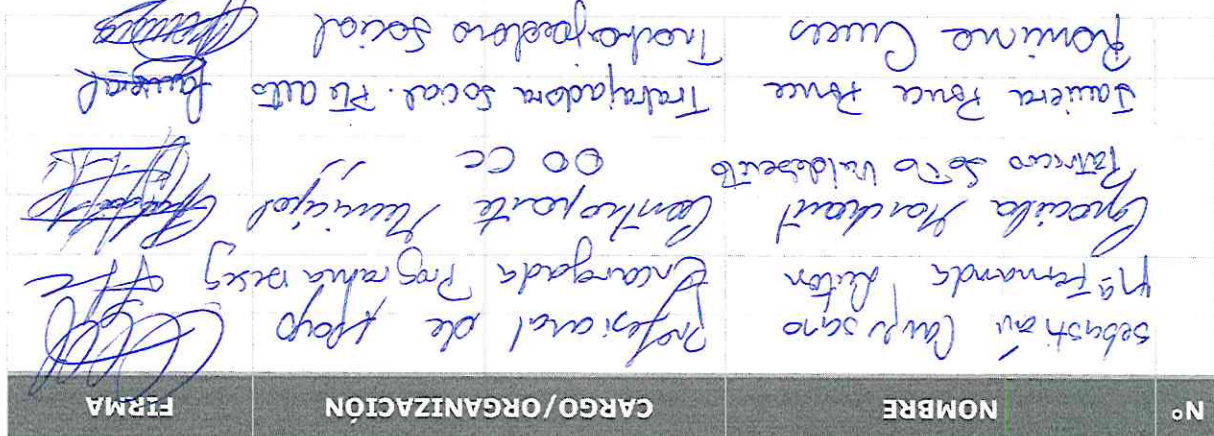 N° NOMBRE CARGO/ORGANIZACIÓN FIRMA
Sebastián Campusano Profesional de Apoyo
Mª Fernanda Luton Encargada Programa
Graciela Marchant Contraparte Municipal
Patricio Soto Valdebenito OO CC
Javiera Ponce Ponce Trabajadora Social. Pte Alto
Romina Cruces Trabajadora Social